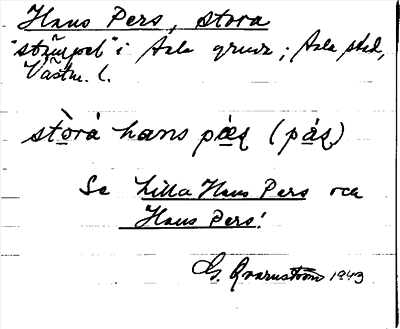 Hans Pers, stora
"stẽmpel" i Sala gruva; Sala stad,
Västm. l.
stòrá hans pæ̣ș (pạ́ș)
Se Lilla Hans Pers och
Hans Pers!
G. Qvarnström 1943